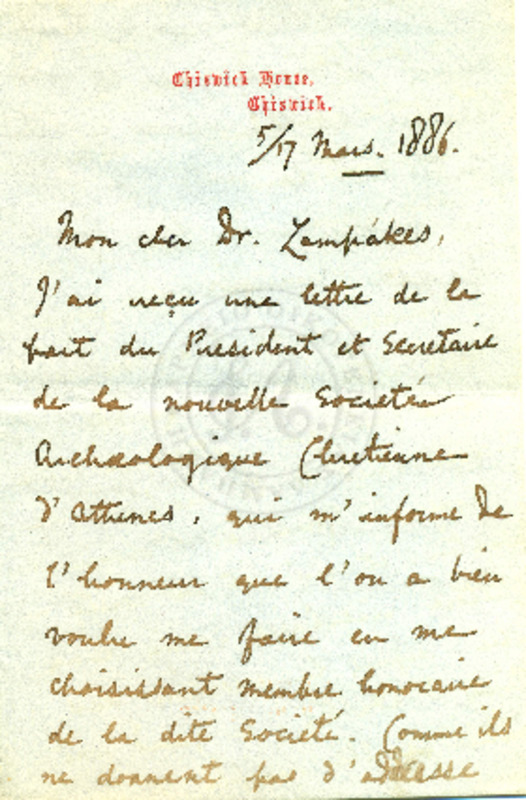 Chiswick House,
Chiswick.
5/17 Mars. 1886.
Mon cher Dr. Lampákes,
J'ai reçu une lettre de la
part du President et Secretaire
de la nouvelle Societée
Archæologique Chretienne
d'Athenes, qui m'informe de
l'honneur que l'on a bien
voulu me faire en me
choisissant membre honoraire
de la dite Societé. Comme ils
ne donnent pas d'adresse